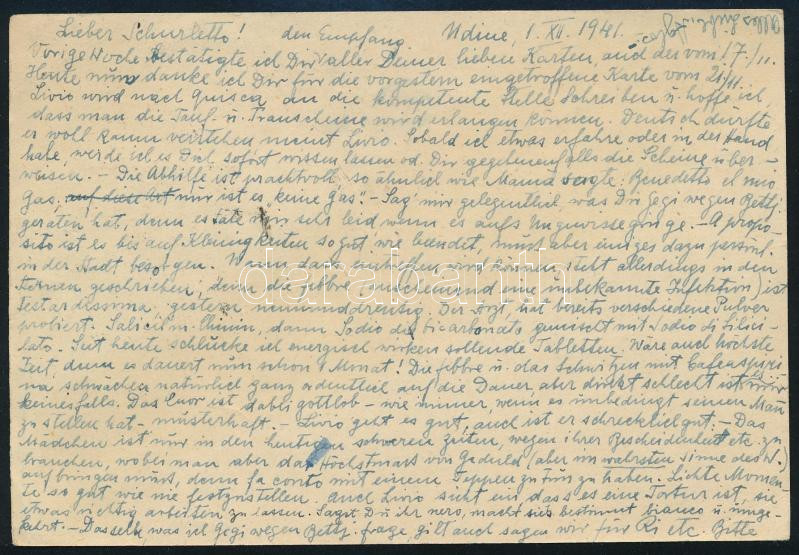 Lieber Schurletto! den Empfang Udine, 1. XII. 1941.
Vorige Woche bestätigte ich Dir aller Deiner lieben Karten, auch der vom 17./11.
Heute nun danke ich Dir für die vorgestern eingetroffene Karte vom 21/11.
Livio wird nach an die kompetente Stelle schreiben u. hoffe ich,
dass man die Tauf- u. Trauscheine wird erlangen können. Deutsch dürfte
er wohl kaum verstehen meint Livio. Sobald ich etwas erfahre oder in der Hand
habe, werde ich es Dich sofort wissen lassen od. Dir gegebenenfalls die Scheine über-
weisen. - Die Abhilfe ist prachtvoll, so ähnlich wie Mama sagte: Benedetto el mio
Gas, auf diese Art nur ist es "keine Gas". - Sag mir gelegentlich was Dir Gegi wegen Bettj
geraten hat, denn es täte mir sehr leid wenn es aufs Ungewisse ginge. - A propo-
sito ist es bis auf Kleinigkeiten so gut wie beendet, muss aber einiges dazu persönl.
in der Stadt besorgen. Wann das eintreffen wird können, steht allerdings in den
Sternen geschrieben, denn die febbre (anscheinend eine unbekannte Infektion) ist
testardissima, gestern neununddreissig. Der Arzt hat bereits verschiedene Pulver
probiert. Salicil m. Chinin, dann Sodio de bicarbonato gemischt mit Sodio di Silici-
lato. Seit heute schlucke ich energisch wirken sollende Tabletten. Wäre auch höchste
Zeit, denn es dauert nun schon 1 Monat! Die febbre u. das Schwitzen mit Cafeaspiri
na schwächen natürlich ganz ordentlich auf die Dauer, aber direkt schlecht ist mir
keinesfalls. Das Cuor ist dabei gottlob - wie immer, wenn es unbedingt seinen Mann
zu stellen hat - musterhaft. - Livio geht es gut, auch ist er schrecklich gut. - Das
Mädchen ist nur in den heutigen schweren Zeiten, wegen ihrer Bescheidenheit etc. zu
brauchen, wobei man aber das Höchstmass von Geduld (aber im wahrsten Sinne des W.)
aufbringen muss, denn fa conto mit einem Deppen zu tun zu haben. Lichte Momen-
te so gut wie nie festzustellen. Auch Livio sieht ein, dass es eine Tortur ist, sie
etwas richtig arbeiten zu lassen. Sagst Du ihr nero, macht sie bestimmt bianco u. umge-
kehrt. - Dasselbe, was ich Gegi wegen Bettj frage, gilt auch sagen wir für Ri etc. Bitte
darabanth.com